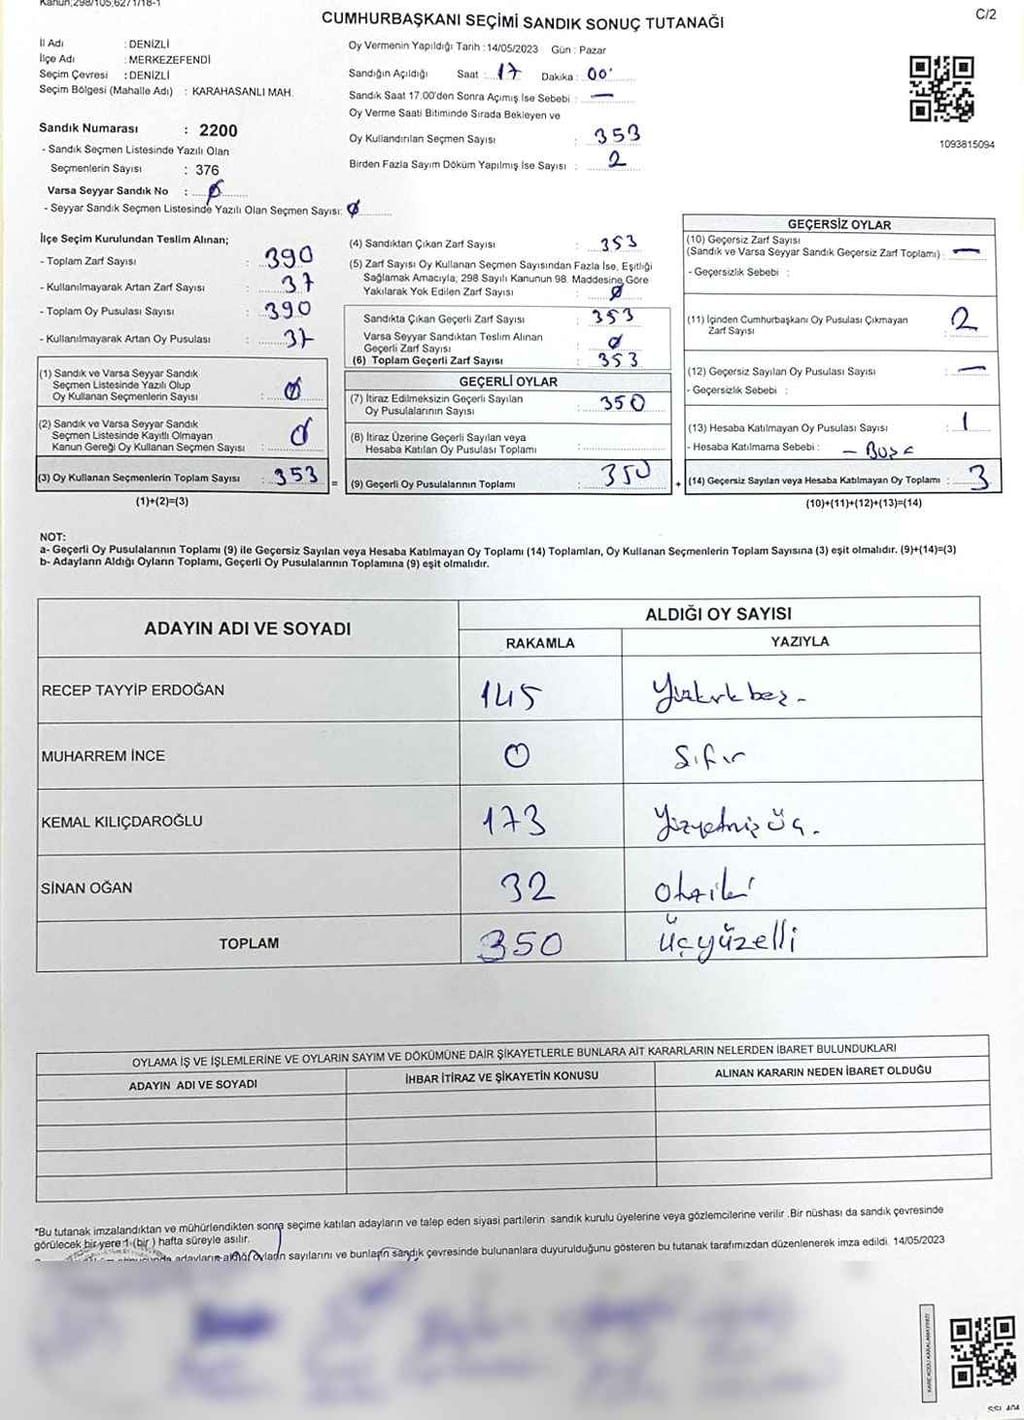 Kanun;298/105;6271/18-1
CUMHURBAŞKANI SEÇİMİ SANDIK SONUÇ TUTANAĞI
C/2
İl Adı : DENİZLİ
İlçe Adı : MERKEZEFENDİ
Seçim Çevresi : DENİZLİ
Seçim Bölgesi (Mahalle Adı) : KARAHASANLI MAH.
Sandık Numarası : 2200
- Sandık Seçmen Listesinde Yazılı Olan
Seçmenlerin Sayısı : 376
Varsa Seyyar Sandık No : Ø
- Seyyar Sandık Seçmen Listesinde Yazılı Olan Seçmen Sayısı: Ø
Oy Vermenin Yapıldığı Tarih : 14/05/2023 Gün : Pazar
Sandığın Açıldığı Saat : 17 Dakika : 00'
Sandık Saat 17.00'den Sonra Açımış İse Sebebi : —
Oy Verme Saati Bitiminde Sırada Bekleyen ve
Oy Kullandırılan Seçmen Sayısı : 353
Birden Fazla Sayım Döküm Yapılmış İse Sayısı : 2
1093815094
İlçe Seçim Kurulundan Teslim Alınan;
- Toplam Zarf Sayısı : 390
- Kullanılmayarak Artan Zarf Sayısı : 37
- Toplam Oy Pusulası Sayısı : 390
- Kullanılmayarak Artan Oy Pusulası : 37
(1) Sandık ve Varsa Seyyar Sandık
Seçmen Listesinde Yazılı Olup
Oy Kullanan Seçmenlerin Sayısı : Ø
(2) Sandık ve Varsa Seyyar Sandık
Seçmen Listesinde Kayıtlı Olmayan
Kanun Gereği Oy Kullanan Seçmen Sayısı : Ø
(3) Oy Kullanan Seçmenlerin Toplam Sayısı : 353
(1)+(2)=(3)
=
(4) Sandıktan Çıkan Zarf Sayısı : 353
(5) Zarf Sayısı Oy Kullanan Seçmen Sayısından Fazla İse, Eşitliği
Sağlamak Amacıyla, 298 Sayılı Kanunun 98. Maddesine Göre
Yakılarak Yok Edilen Zarf Sayısı : Ø
Sandıkta Çıkan Geçerli Zarf Sayısı : 353
Varsa Seyyar Sandıktan Teslim Alınan
Geçerli Zarf Sayısı : Ø
(6) Toplam Geçerli Zarf Sayısı : 353
GEÇERLİ OYLAR
(7) İtiraz Edilmeksizin Geçerli Sayılan
Oy Pusulalarının Sayısı : 350
(8) İtiraz Üzerine Geçerli Sayılan veya
Hesaba Katılan Oy Pusulası Toplamı :
(9) Geçerli Oy Pusulalarının Toplamı : 350
+
GEÇERSİZ OYLAR
(10) Geçersiz Zarf Sayısı
(Sandık ve Varsa Seyyar Sandık Geçersiz Zarf Toplamı) : —
- Geçersizlik Sebebi :
(11) İçinden Cumhurbaşkanı Oy Pusulası Çıkmayan
Zarf Sayısı : 2
(12) Geçersiz Sayılan Oy Pusulası Sayısı : —
- Geçersizlik Sebebi :
(13) Hesaba Katılmayan Oy Pusulası Sayısı : 1
- Hesaba Katılmama Sebebi :
(14) Geçersiz Sayılan veya Hesaba Katılmayan Oy Toplamı : 3
(10)+(11)+(12)+(13)=(14)
NOT:
a- Geçerli Oy Pusulalarının Toplamı (9) ile Geçersiz Sayılan veya Hesaba Katılmayan Oy Toplamı (14) Toplamları, Oy Kullanan Seçmenlerin Toplam Sayısına (3) eşit olmalıdır. (9)+(14)=(3)
b- Adayların Aldığı Oyların Toplamı, Geçerli Oy Pusulalarının Toplamına (9) eşit olmalıdır.
ADAYIN ADI VE SOYADI ALDIĞI OY SAYISI
RAKAMLA YAZIYLA
RECEP TAYYİP ERDOĞAN 145 Yüzkırkbeş -
MUHARREM İNCE 0 Sıfır
KEMAL KILIÇDAROĞLU 173 Yüzyetmişüç.
SİNAN OĞAN 32 Otuziki
TOPLAM 350 Üçyüzelli
OYLAMA İŞ VE İŞLEMLERİNE VE OYLARIN SAYIM VE DÖKÜMÜNE DAİR ŞİKAYETLERLE BUNLARA AİT KARARLARIN NELERDEN İBARET BULUNDUKLARI
ADAYIN ADI VE SOYADI İHBAR İTİRAZ VE ŞİKAYETİN KONUSU ALINAN KARARIN NEDEN İBARET OLDUĞU
*Bu tutanak imzalandıktan ve mühürlendikten sonra seçime katılan adayların ve talep eden siyasi partilerin sandık kurulu üyelerine veya gözlemcilerine verilir .Bir nüshası da sandık çevresinde
görülecek bir yere 1 (bir ) hafta süreyle asılır.
adayların aldığı oyların sayılarını ve bunların sandık çevresinde bulunanlara duyurulduğunu gösteren bu tutanak tarafımızdan düzenlenerek imza edildi. 14/05/2023